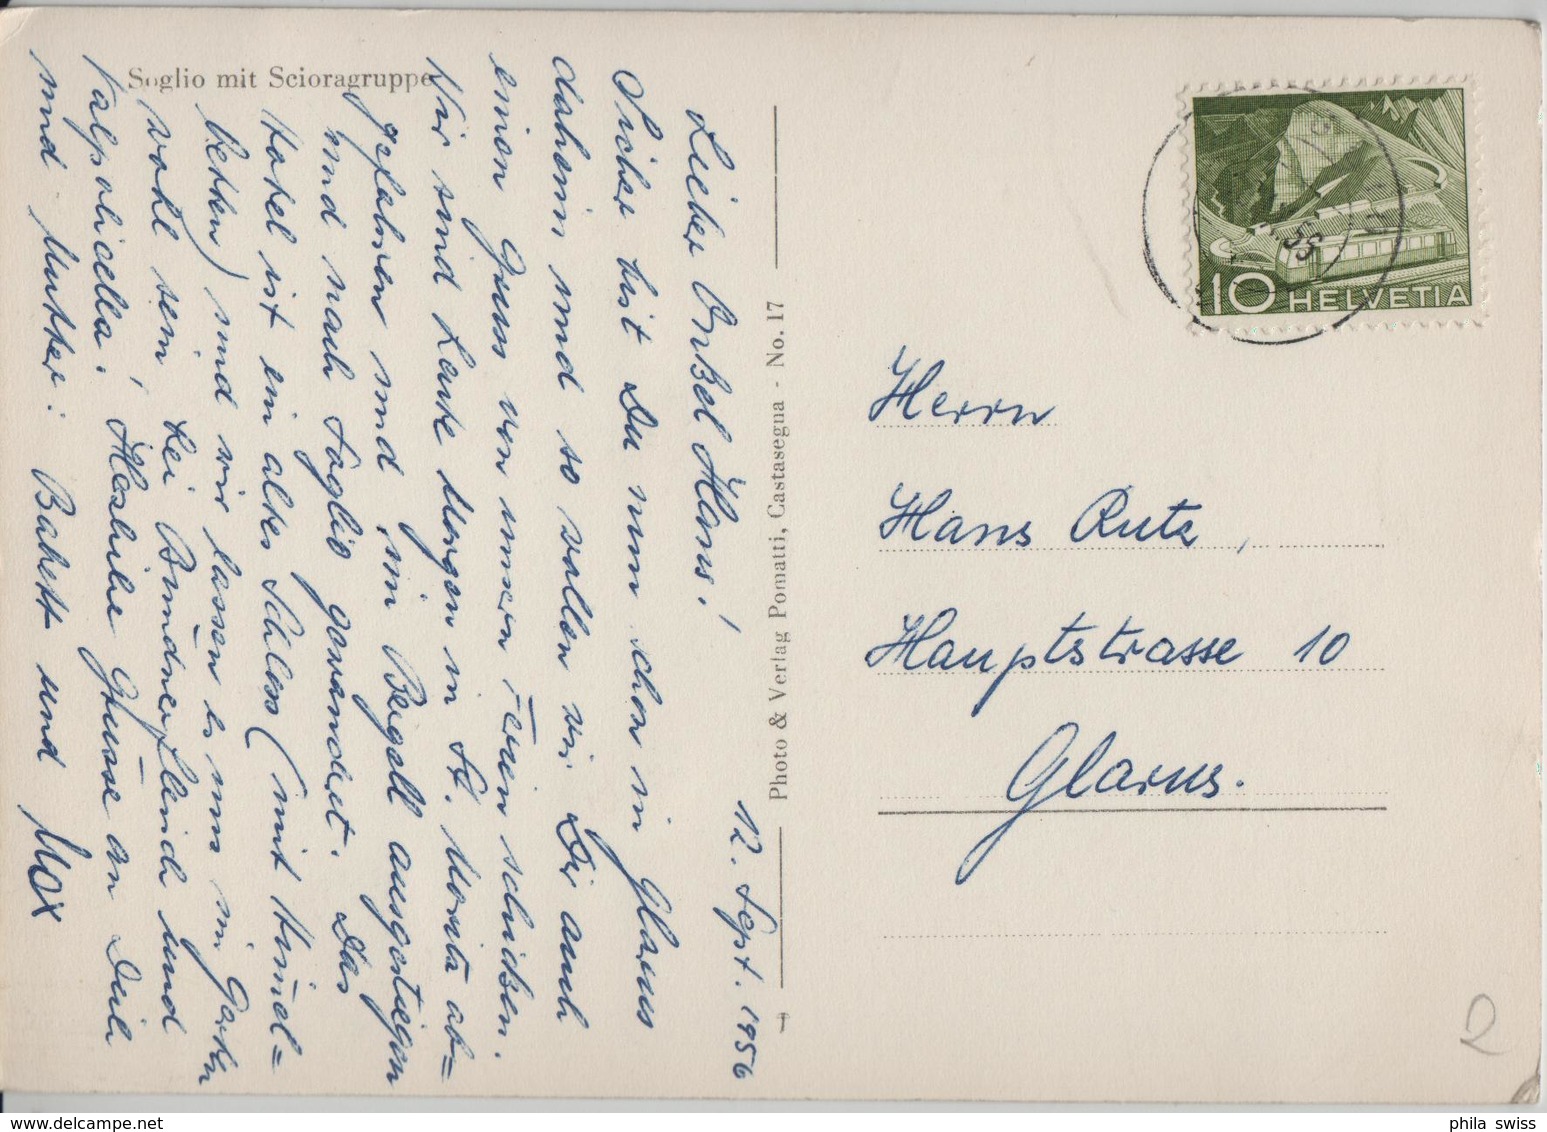 Soglio mit Scioragruppe
12. Sept. 1956
Lieber Onkel Hans!
Sicher bist Du nun schon in Glarus
daheim und so wollen wir Dir auch
einen Gruss von unsern Ferien schicken.
Wir sind heute Morgen in St. Moritz ab=
gefahren und im Bergell ausgestiegen
und nach Soglio gewandert. Das
Hotel ist ein altes Schloss (mit Himmel=
betten) und wir lassen es uns im Garten
wohl sein! bei Bündnerfleisch und
Valpolicella! Herzliche Grüsse an Dich
und Mutter: Babett und Max
Photo & Verlag Pomatti, Castasegna - No. 17
10 HELVETIA
Herrn
Hans Rutz,
Hauptstrasse 10
Glarus.
phila swiss